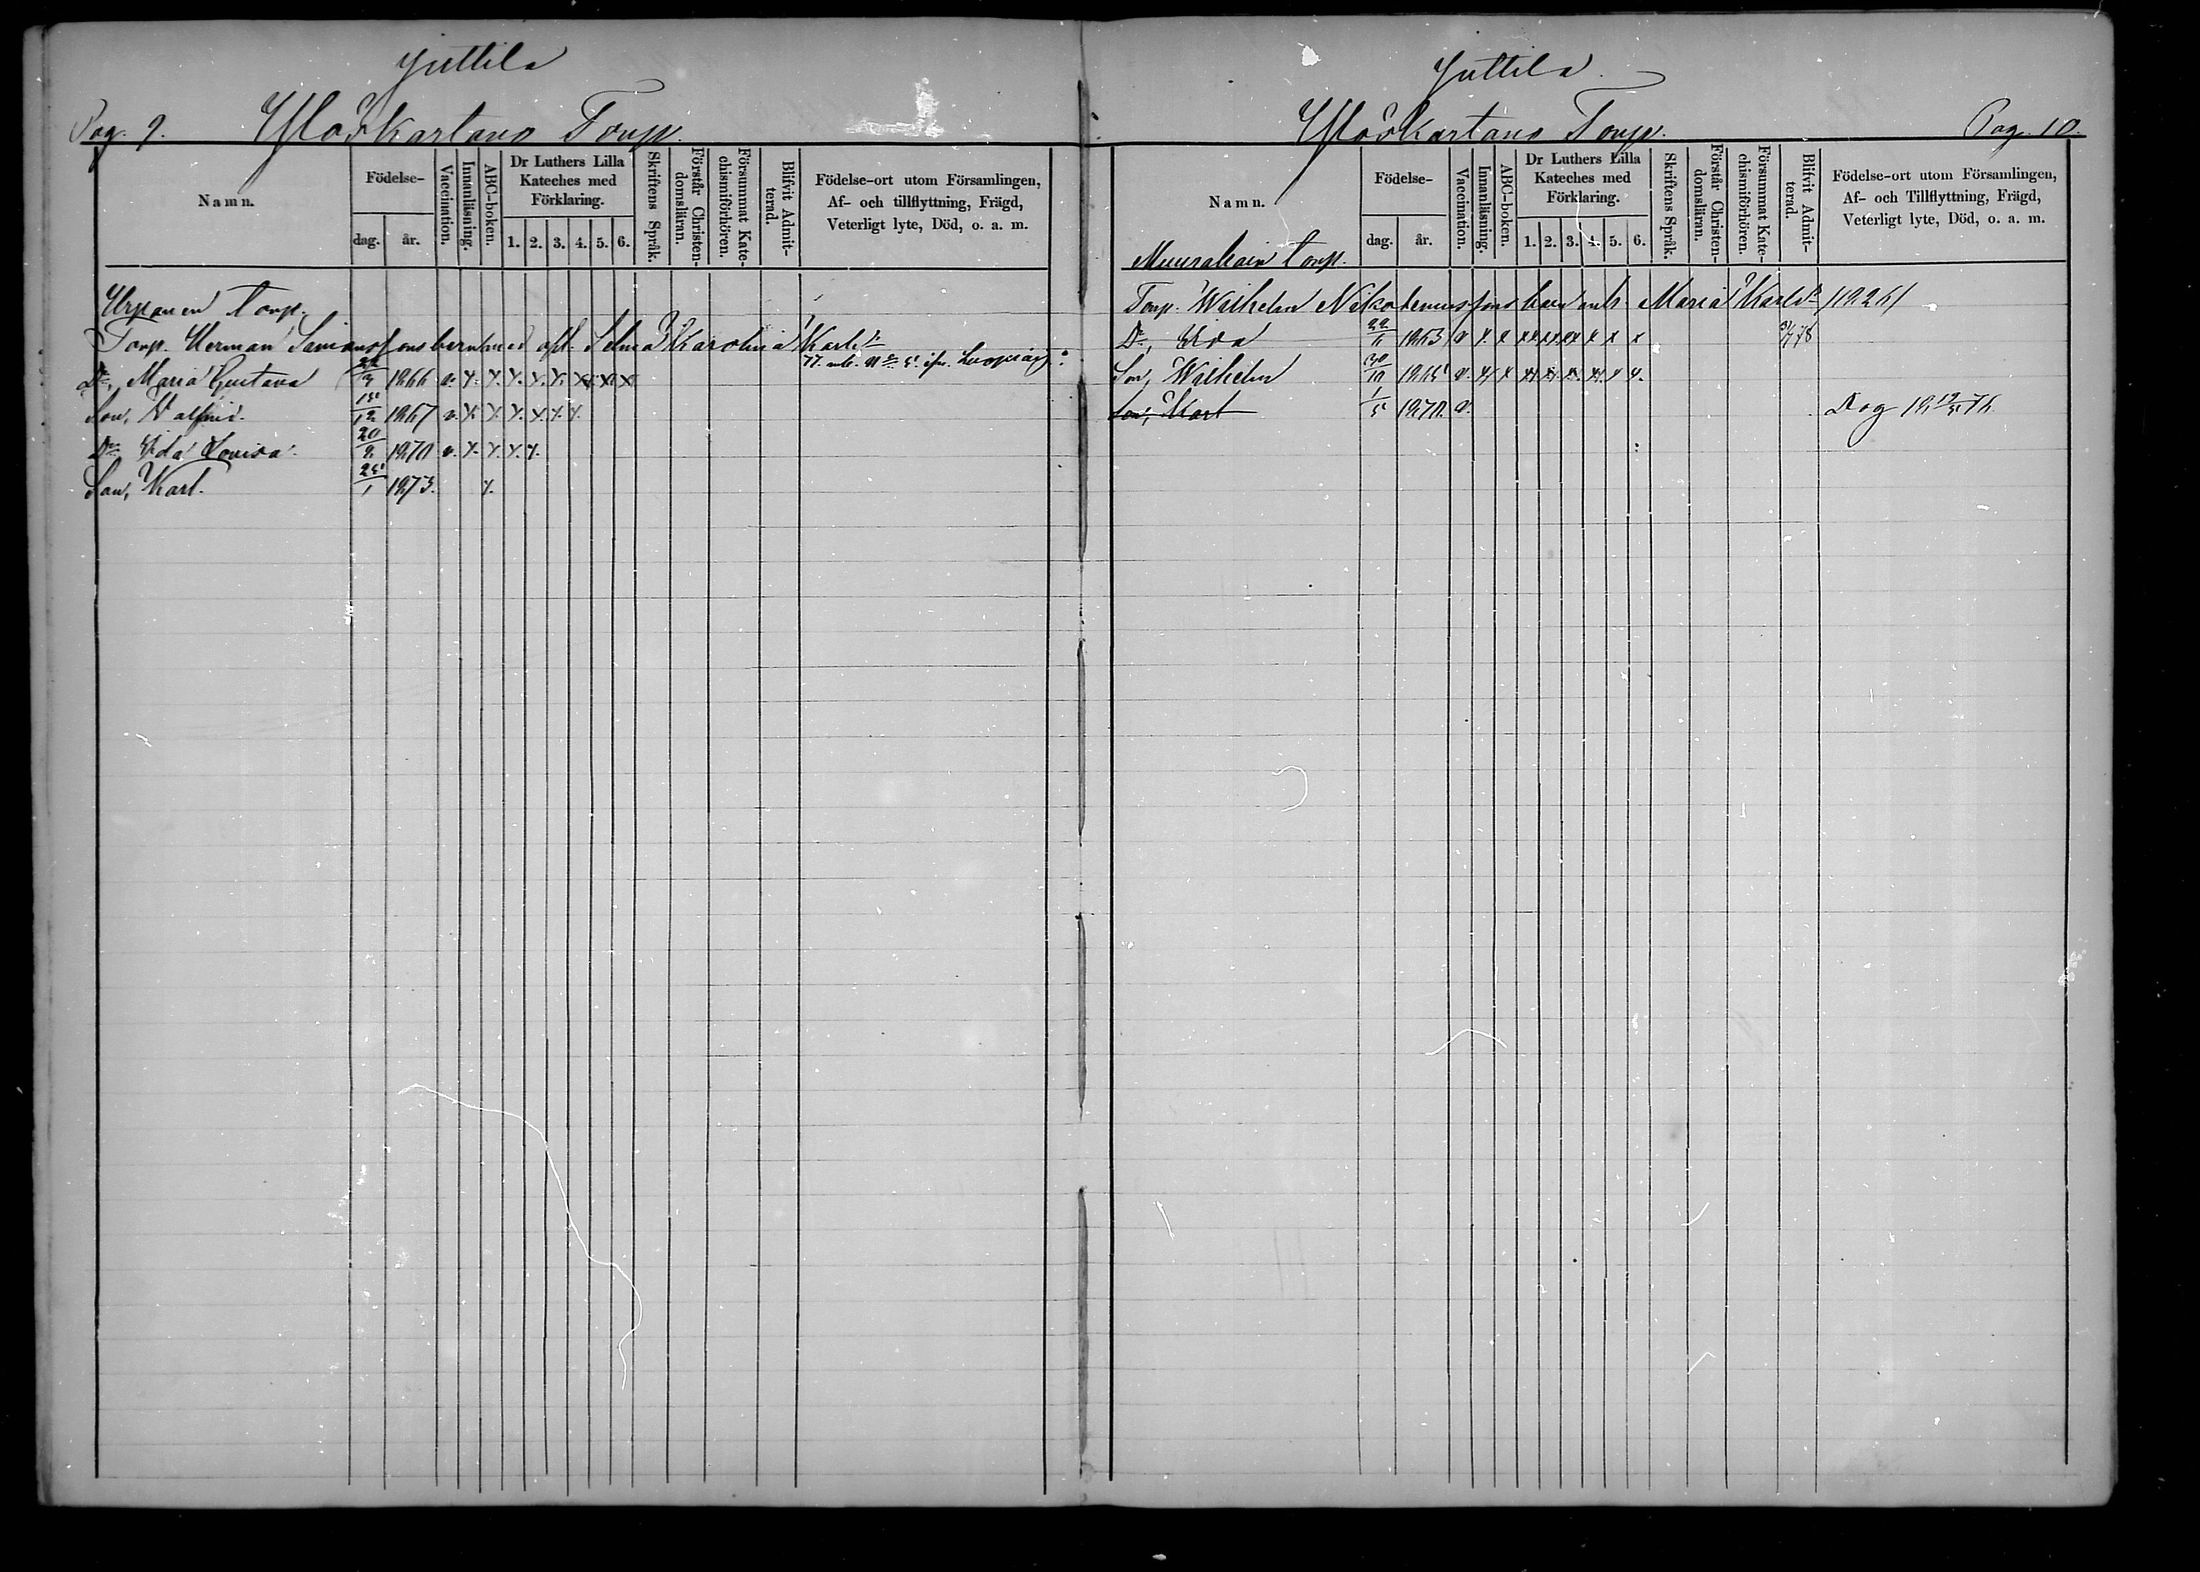 Juttila
Pag. 9. Ylöskartano Torp.
Namn.
Födelse-
dag. år.
Vaccination.
Innanläsning.
ABC-boken.
Dr Luthers Lilla Kateches med Förklaring.
1. 2. 3. 4. 5. 6.
Skriftens Språk.
Förstår Christendomsläran.
Försummat Katechismiförhören.
Blifvit Admitterad.
Födelse-ort utom Församlingen, Af- och tillflyttning, Frägd, Veterligt lyte, Död, o. a. m.
Urpanen torp.
Torp. Herman barn med Selma Karolina Karls dr
77.
Dr, Maria Gustava 1866 v. x. x. x. x. x. x x x
Son, Valfrid. 15/12 1867 v. x. x. x. x. x. x.
Dr Ida Lovisa. 20/9 1870 v. x. x. x. x.
Son, Karl. 25/1 1873. x.
Juttila.
Ylöskartano Torp. Pag. 10.
Namn.
Födelse-
dag. år.
Vaccination.
Innanläsning.
ABC-boken.
Dr Luthers Lilla Kateches med Förklaring.
1. 2. 3. 4. 5. 6.
Skriftens Språk.
Förstår Christendomsläran.
Försummat Katechismiförhören.
Blifvit Admitterad.
Födelse-ort utom Församlingen, Af- och Tillflyttning, Frägd, Veterligt lyte, Död, o. a. m.
torp.
Torp. Wilhelm Nikodemusson barn Maria Karls dr
Dr, Ida 1863 v x x xx xx xx x x x
Son, Wilhelm 30/10 v. x x x x x x x x.
Son, Karl 1/5 1870. v. Dog